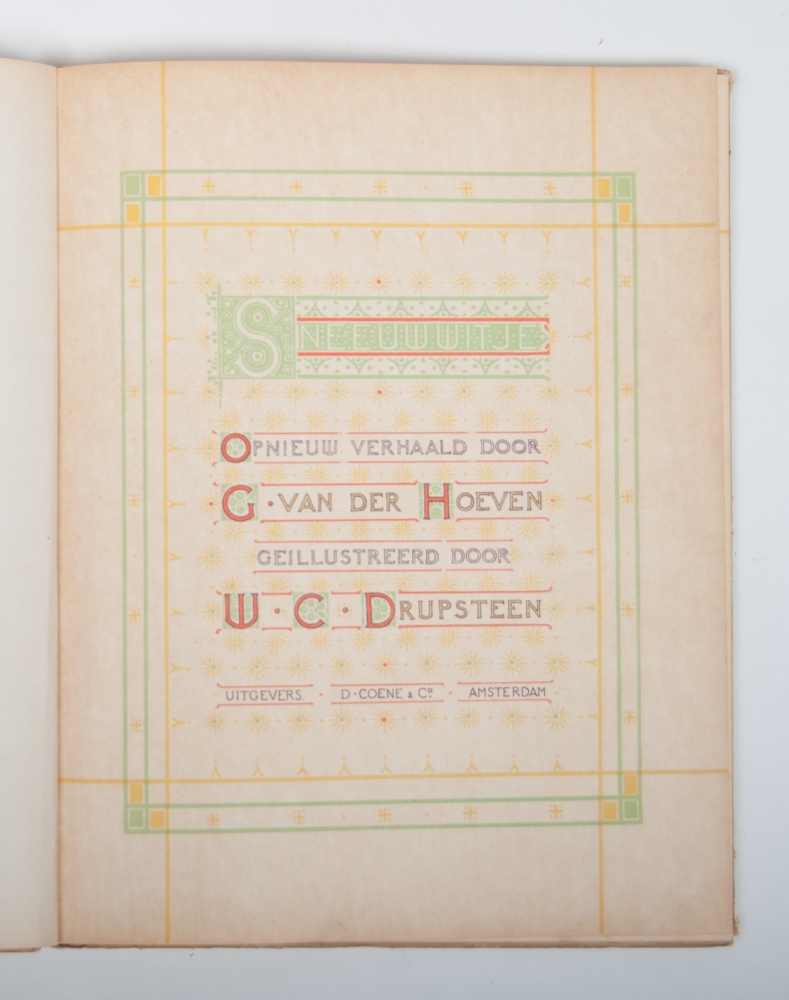 SNEEUWWITJE
OPNIEUW VERHAALD DOOR
G · VAN DER HOEVEN
GEILLUSTREERD DOOR
W · C · DRUPSTEEN
UITGEVERS · D · COENE & Co. · AMSTERDAM